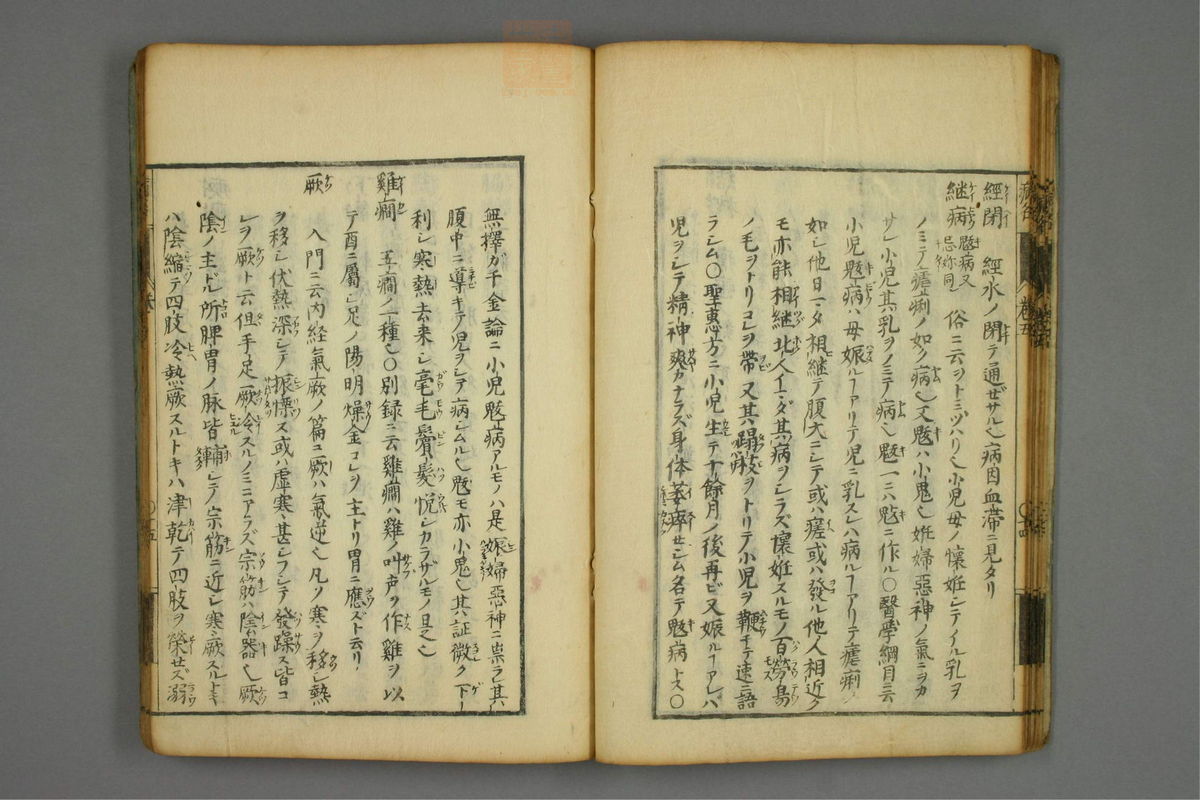 經閉 經水ノ閉テ通ゼサル也病因血滯ニ見タリ
継病 魃病又忌妳同 俗ニ云ヲトミツハリ也小児母ノ懐妊シテイル乳ヲ
ノミテ瘧痢ノ如ク病也又魃ハ小鬼也妊婦惡神ノ氣ニヲカ
サレ小児其乳ヲノミテ病也魃一ニハ鬾ニ作ル〇醫學綱目ニ云
小児魃病ハ母娠ルヿアリテ児ニ乳スレハ病ルヿアリテ瘧痢ノ
如シ他日ニ相継テ腹大ニシテ或ハ瘥或ハ發ル他人相近ク
モ亦能相継北人イマダ其病ヲシラズ懐妊スルモノ百勞鳥
ノ毛ヲトリコレヲ帯又其蹋枝ヲトリテ小児ヲ鞭チテ速ニ語
ラシム〇聖惠方ニ小児生テ十餘月ノ後再ビ又娠ルヿアレハ
児ヲシテ精神爽カナラズ身体萎瘁セシム名テ魃病トス〇
無擇ガ千金論ニ小児魃病アルモノハ是娠婦惡神ニ祟ラ其
腹中ニ導キテ児ヲシテ病シムル也魃モ亦小鬼也其証微ク下
利シ寒熱去来シ毫毛鬢髪悦シカラザルモノ是也
雞癇 五癇ノ一種也〇別録ニ云雞癇ハ雞ノ叫声ヲ作雞ヲ以
テ酉ニ屬シ足ノ陽明燥金コレヲ主トリ胃ニ應ズト云リ
厥 入門ニ云内経氣厥ノ篇ニ厥ハ氣逆也凡ソ寒ヲ移シ熱
ヲ移シ伏熱深シテ振慄ス或ハ虚寒甚シフシテ發躁ス皆コ
レヲ厥ト云但手足厥冷スルノミニアラズ宗筋ハ陰器也厥
陰ノ主トル所脾胃ノ脉皆輔シテ宗筋ニ近シ寒厥スルトキ
ハ陰縮テ四肢冷熱厥スルトキハ津乾テ四肢ヲ榮セズ溺